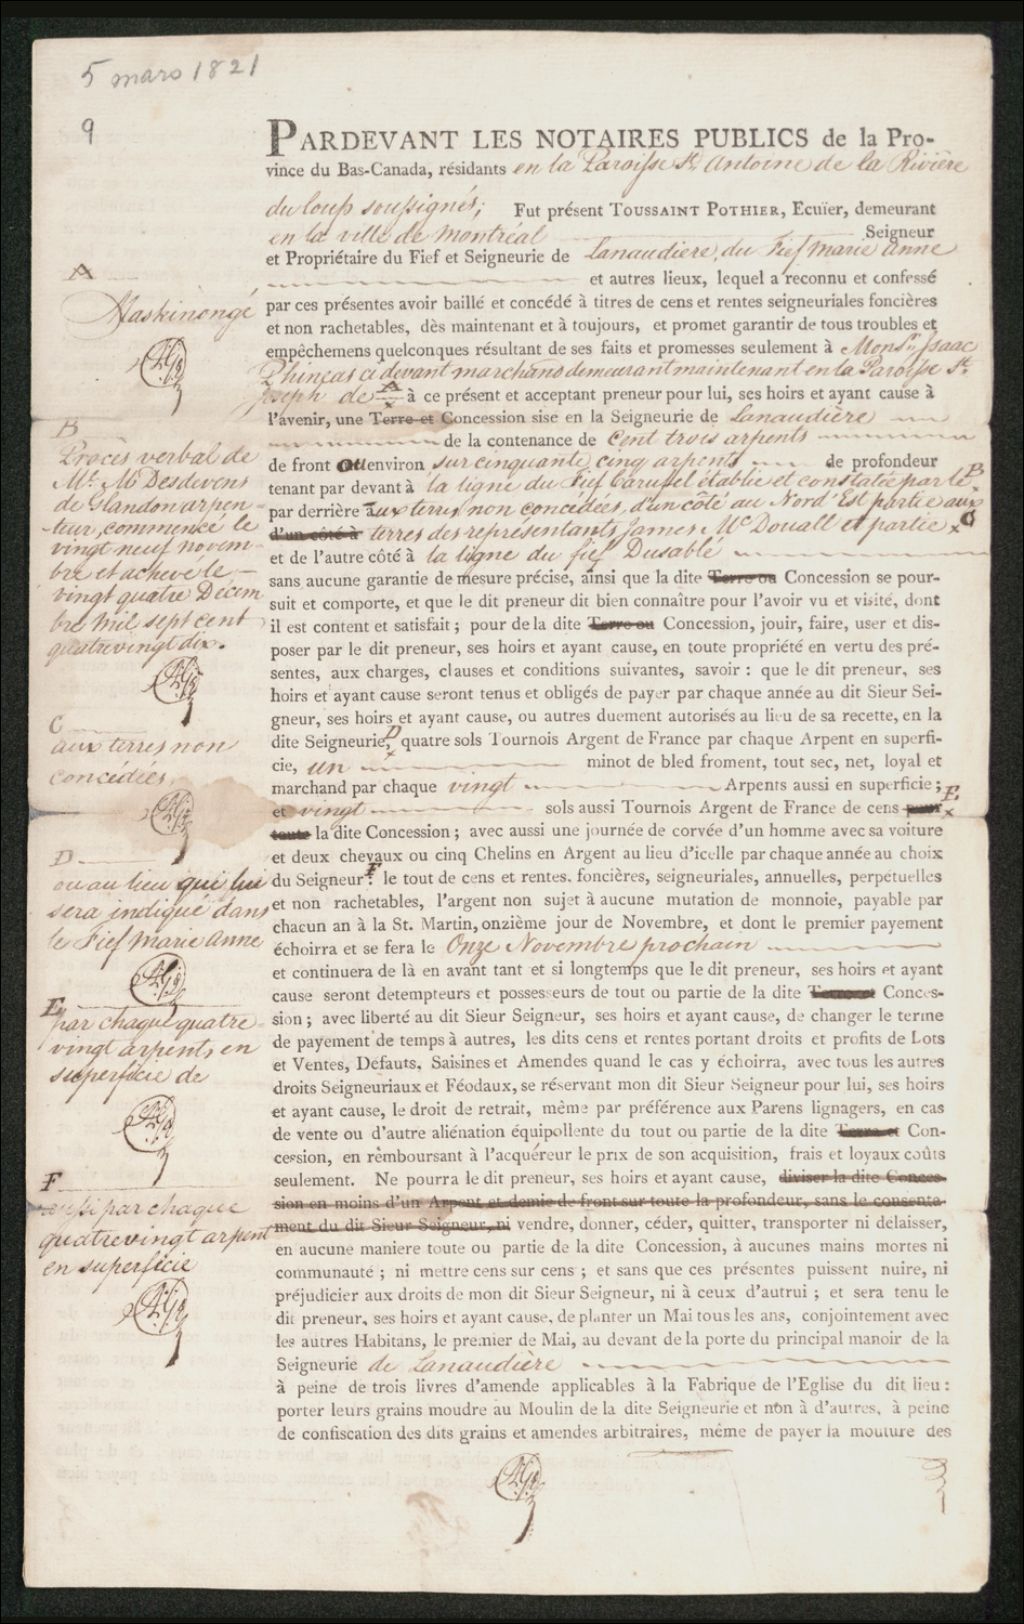 5 mars 1821
9
PARDEVANT LES NOTAIRES PUBLICS de la Pro-
vince du Bas-Canada, résidants en la Paroisse St. Antoine de la Rivière
du loup soussignés; Fut présent TOUSSAINT POTHIER, Ecuïer, demeurant
en la ville de Montréal Seigneur
et Propriétaire du Fief et Seigneurie de Lanaudiere, du Fief Marie Anne
et autres lieux, lequel a reconnu et confessé
par ces présentes avoir baillé et concédé à titres de cens et rentes seigneuriales foncières
et non rachetables, dès maintenant et à toujours, et promet garantir de tous troubles et
empêchemens quelconques résultant de ses faits et promesses seulement à Monsr. Isaac
Phineas ci devant marchand demeurant maintenant en la Paroisse St.
Joseph de A à ce présent et acceptant preneur pour lui, ses hoirs et ayant cause à
l'avenir, une Terre et Concession sise en la Seigneurie de Lanaudière
de la contenance de Cent trois arpents
de front ou environ sur cinquante cinq arpents de profondeur
tenant par devant à la ligne du Fief Carufel établie et constatée par le B
par derrière aux terres non concédées, d'un côté au Nord Est partie aux
d'un côté à terres des représentants James McDouall et partie x C
et de l'autre côté à la ligne du fief Dusablé
sans aucune garantie de mesure précise, ainsi que la dite Terre ou Concession se pour-
suit et comporte, et que le dit preneur dit bien connaître pour l'avoir vu et visité, dont
il est content et satisfait; pour de la dite Terre ou Concession, jouir, faire, user et dis-
poser par le dit preneur, ses hoirs et ayant cause, en toute propriété en vertu des pré-
sentes, aux charges, clauses et conditions suivantes, savoir: que le dit preneur, ses
hoirs et ayant cause seront tenus et obligés de payer par chaque année au dit Sieur Sei-
gneur, ses hoirs et ayant cause, ou autres duement autorisés au lieu de sa recette, en la
dite Seigneurie, D quatre sols Tournois Argent de France par chaque Arpent en superfi-
cie, un minot de bled froment, tout sec, net, loyal et
marchand par chaque vingt Arpents aussi en superficie; E
et vingt sols aussi Tournois Argent de France de cens pour x
toute la dite Concession; avec aussi une journée de corvée d'un homme avec sa voiture
et deux chevaux ou cinq Chelins en Argent au lieu d'icelle par chaque année au choix
du Seigneur F: le tout de cens et rentes. foncières, seigneuriales, annuelles, perpetuelles
et non rachetables, l'argent non sujet à aucune mutation de monnoie, payable par
chacun an à la St. Martin, onzième jour de Novembre, et dont le premier payement
échoirra et se fera le Onze Novembre prochain
et continuera de là en avant tant et si longtemps que le dit preneur, ses hoirs et ayant
cause seront detempteurs et possesseurs de tout ou partie de la dite Terre et Conces-
sion; avec liberté au dit Sieur Seigneur, ses hoirs et ayant cause, de changer le terme
de payement de temps à autres, les dits cens et rentes portant droits et profits de Lots
et Ventes, Défauts, Saisines et Amendes quand le cas y échoirra, avec tous les autres
droits Seigneuriaux et Féodaux, se réservant mon dit Sieur Seigneur pour lui, ses hoirs
et ayant cause, le droit de retrait, même par préférence aux Parens lignagers, en cas
de vente ou d'autre aliénation équipollente du tout ou partie de la dite Terre et Con-
cession, en remboursant à l'acquéreur le prix de son acquisition, frais et loyaux coûts
seulement. Ne pourra le dit preneur, ses hoirs et ayant cause, diviser la dite Conces-
sion en moins d'un Arpent et demie de front sur toute la profondeur, sans le consente-
ment du dit Sieur Seigneur, ni vendre, donner, céder, quitter, transporter ni délaisser,
en aucune maniere toute ou partie de la dite Concession, à aucunes mains mortes ni
communauté; ni mettre cens sur cens; et sans que ces présentes puissent nuire, ni
préjudicier aux droits de mon dit Sieur Seigneur, ni à ceux d'autrui; et sera tenu le
dit preneur, ses hoirs et ayant cause, de planter un Mai tous les ans, conjointement avec
les autres Habitans, le premier de Mai, au devant de la porte du principal manoir de la
Seigneurie de Lanaudière
à peine de trois livres d'amende applicables à la Fabrique de l'Eglise du dit lieu:
porter leurs grains moudre au Moulin de la dite Seigneurie et non à d'autres, à peine
de confiscation des dits grains et amendes arbitraires, même de payer la mouture des
A
Maskinongé
B
Procès verbal de
Mr. Ml. Desdevens
de Glandon arpen-
teur, commencé le
vingt neuf novem-
bre et achevé le
vingt quatre Décem
bre mil sept cent
quatrevingt dix.
C
aux terres non
concédées
D
ou au lieu qui lui
sera indiqué dans
le Fief Marie Anne
E
par chaque quatre
vingt arpents en
superficie de
F
aussi par chaque
quatrevingt arpent
en superficie